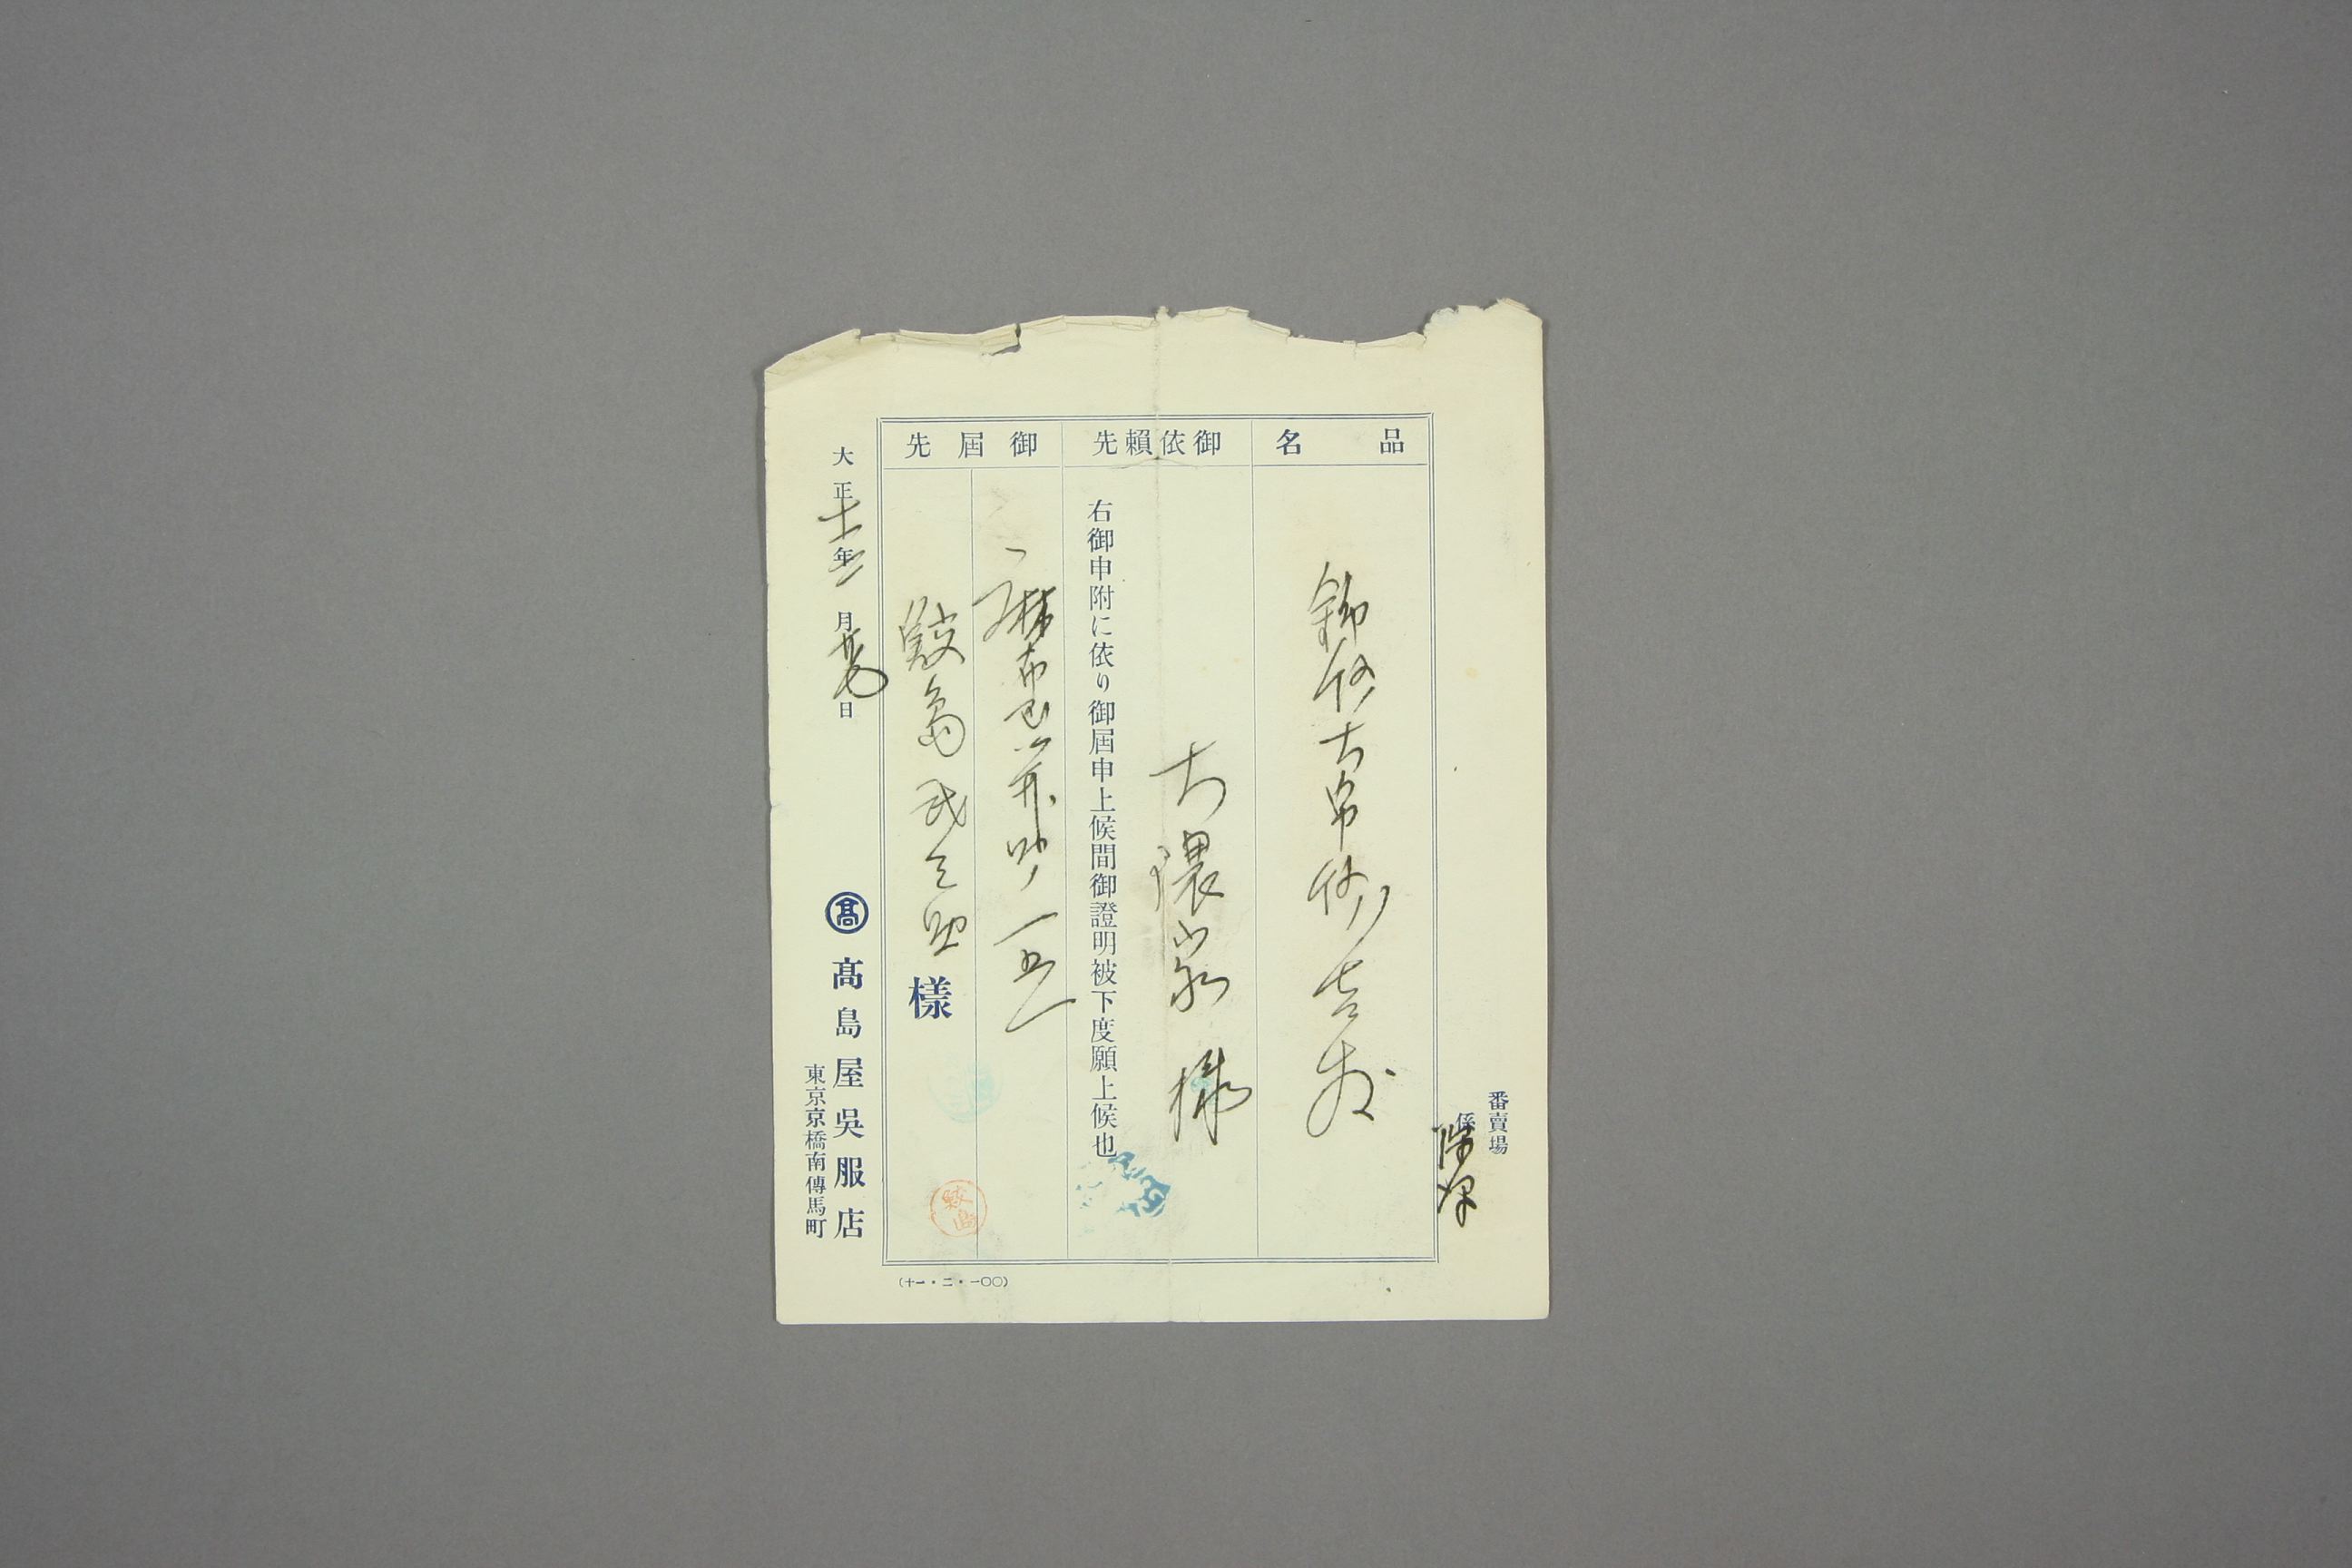 番賣場
係
品名
錦紗大帛紗壱表
御依頼先
大隈家様
右御申附に依り御屆申上候間御證明被下度願上候也
御屆先
麻布
一五一
鮫島武之助
樣
大正十一年二月廿七日
髙
髙島屋吳服店
東京京橋南傳馬町
(十一・二・一〇〇)
鮫島